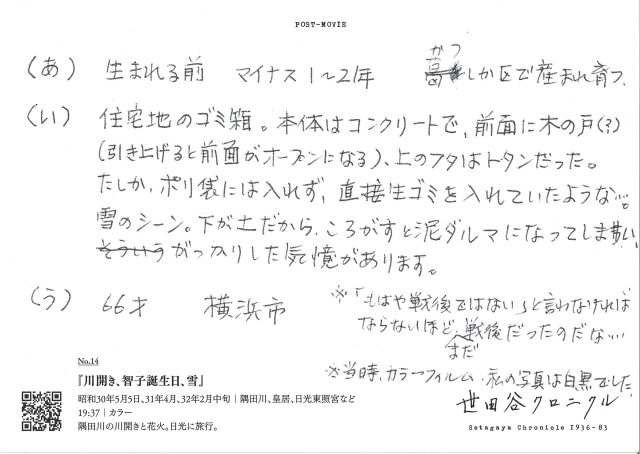 POST-MOVIE
(あ) 生まれる前 マイナス1〜2年 かつしか区で産まれ育つ.
(い) 住宅地のゴミ箱。本体はコンクリートで、前面に木の戸(?)
(引き上げると前面がオープンになる)、上のフタはトタンだった。
たしか、ポリ袋には入れず、直接生ゴミを入れていたような…
雪のシーン。下が土だから、ころがすと泥ダルマになってしまい、
がっかりした気憶があります。
(う) 66才 横浜市
※「もはや戦後ではない」と言わなければ
ならないほど、まだ戦後だったのだな…
※当時、カラーフィルム、私の写真は白黒でした
No.14
『川開き、智子誕生日、雪』
昭和30年5月5日、31年4月、32年2月中旬|隅田川、皇居、日光東照宮など
19:37|カラー
隅田川の川開きと花火。日光に旅行。
世田谷クロニクル
Setagaya Chronicle 1936-83